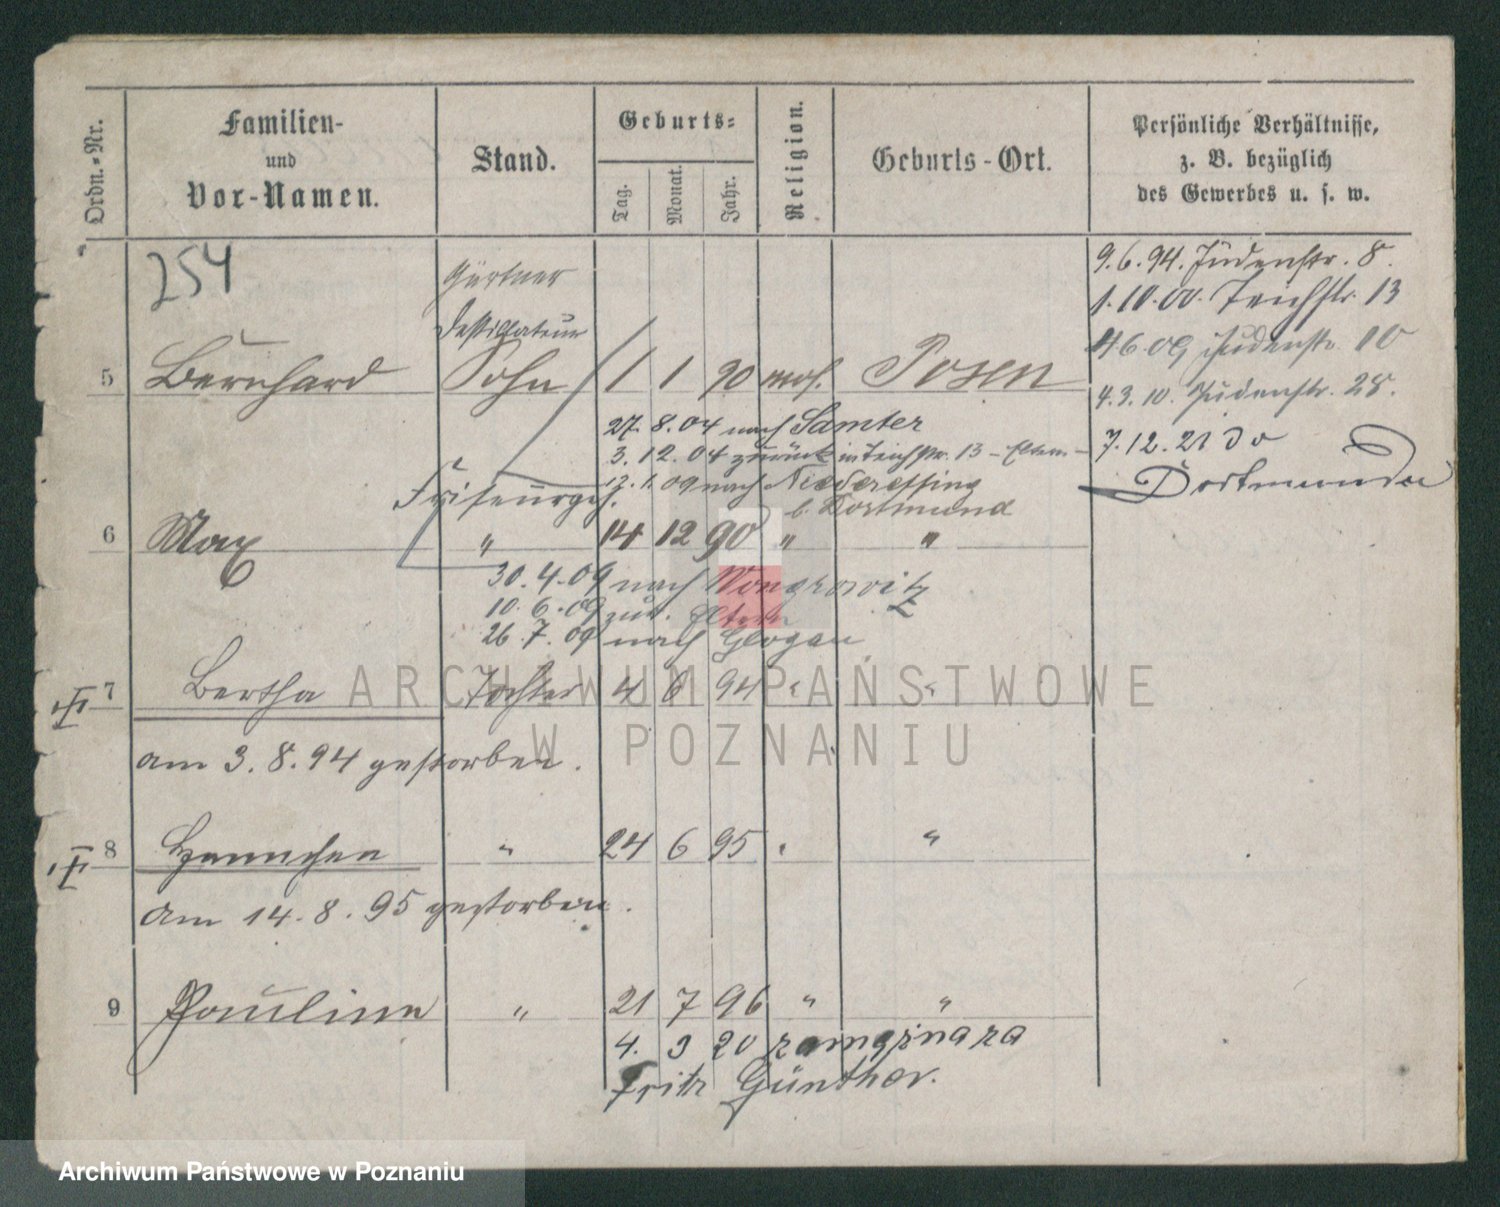 Ordn.-Nr.
Familien-
und
Vor-Namen.
Stand.
Geburts-
Tag.
Monat.
Jahr.
Religion.
Geburts-Ort.
Persönliche Verhältnisse,
z. B. bezüglich
des Gewerbes u. s. w.
254
9.6.94. Judenstr. 8.
1.10.00. Teichstr. 13
4.6.09 Judenstr. 10
4.3.10. Judenstr. 28.
7.12.21 do
Dortmund
Gärtner
Destillateur
5 Bernhard Sohn 1 1 90 mos. Posen
27.8.04 nach Samter
3.12.04 zurück in Teichstr. 13 - Eltern -
12.1.09 nach Niederessing
b. Dortmund
Friseurgeh.
6 Max " 14 12 90 " "
30.4.09 nach Wongrowitz
10.6.09 zur. Eltern
26.7.09 nach Glogau
7 Bertha Tochter 4 6 94 " "
am 3.8.94 gestorben.
8 Hannchen " 24 6 95 " "
am 14.8.95 gestorben.
9 Pauline " 21 7 96 " "
4. 3 20 zamężna za
Fritz Günther.
ARCHIWUM PAŃSTWOWE
W POZNANIU
Archiwum Państwowe w Poznaniu